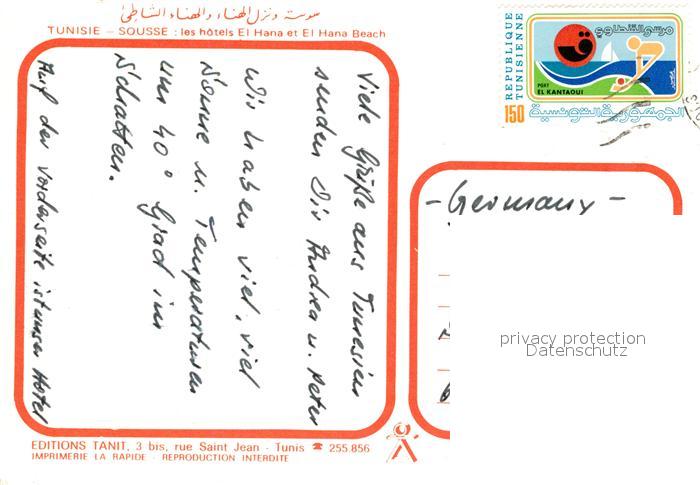 سوسة ونزل الهناء والهناء الشاطئ
TUNISIE - SOUSSE : les hôtels El Hana et El Hana Beach
Viele Grüße aus Tunesien
senden Dir Andrea u. Peter
Wir haben viel, viel
Sonne u. Temperaturen
um 40° Grad im
Schatten.
Auf der Vorderseite ist unser Hotel
EDITIONS TANIT, 3 bis, rue Saint Jean - Tunis ☎ 255.856
IMPRIMERIE LA RAPIDE - REPRODUCTION INTERDITE
REPUBLIQUE
TUNISIENNE
مرسى القنطاوي
PORT
EL KANTAOUI
150
الجمهورية التونسية
- Germany -
privacy protection
Datenschutz